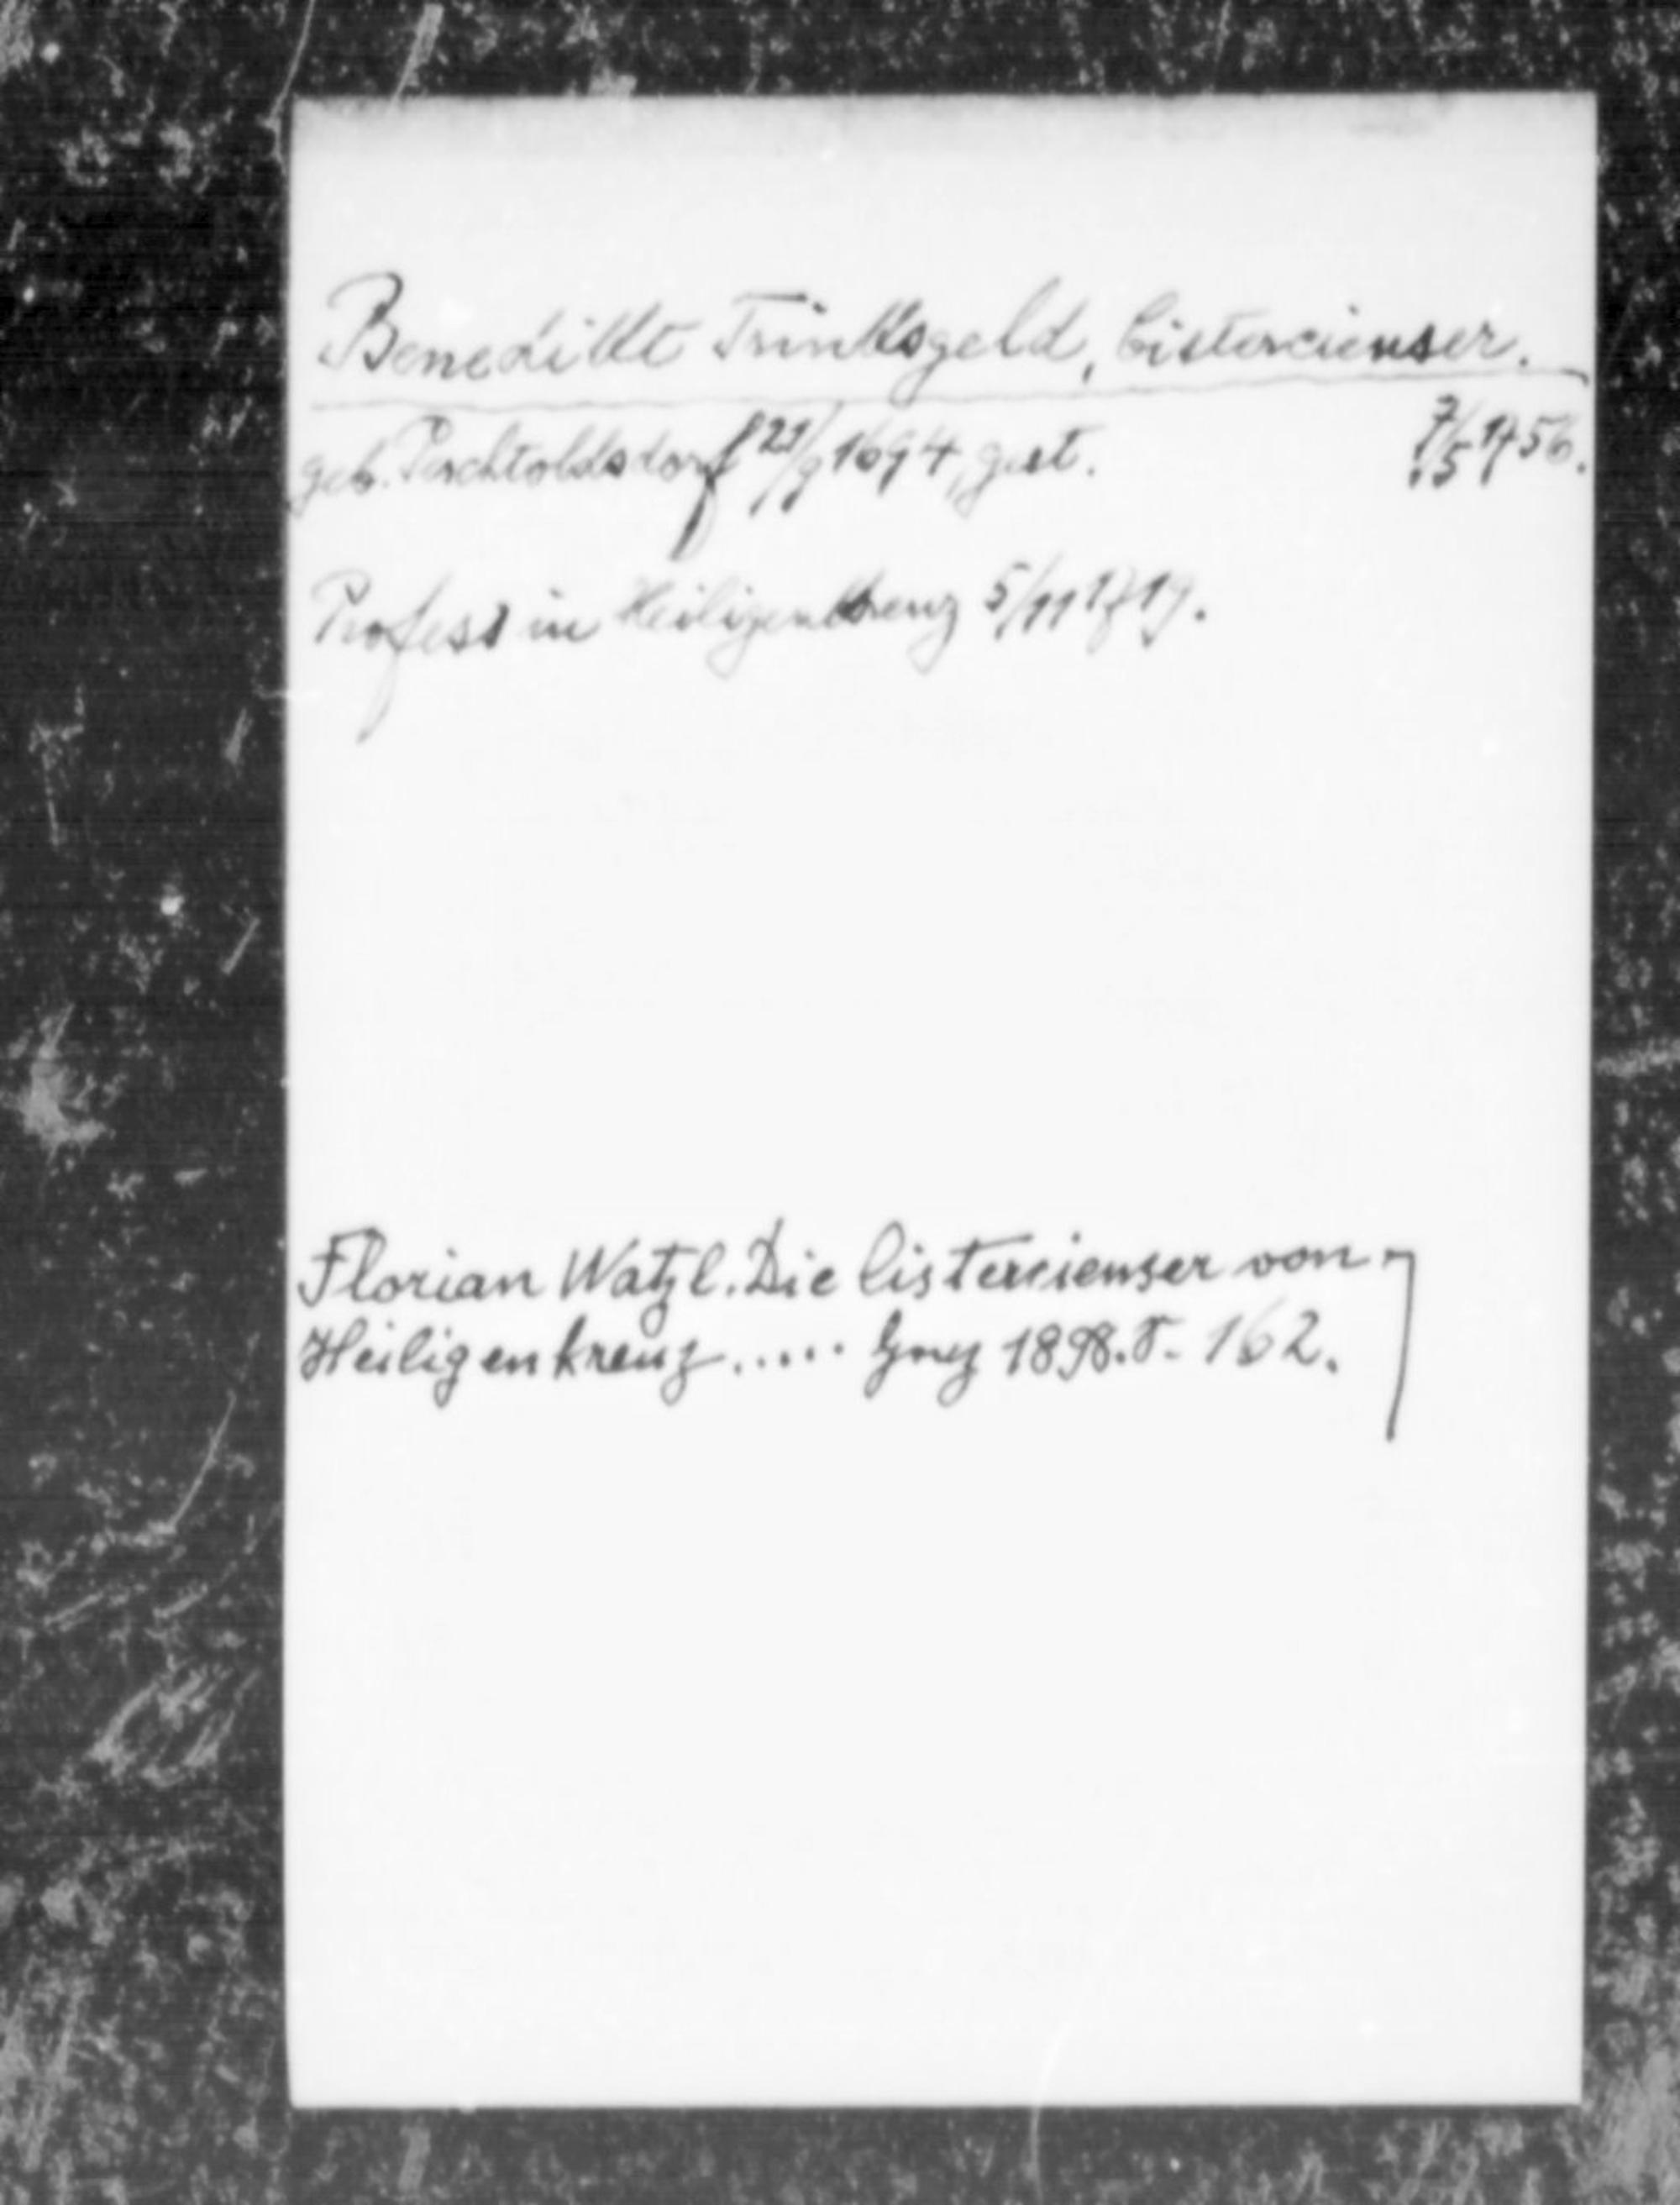 Benedikt Trinksgeld, Cistercienser.
geb. Perchtoldsdorf 21/9 1694, gest. 7/5 1756.
Profess in Heiligenkreuz 5/11 1719.
Florian Watzl. Die Cistercienser von
Heiligenkreuz ..... Graz 1898. S. 162.